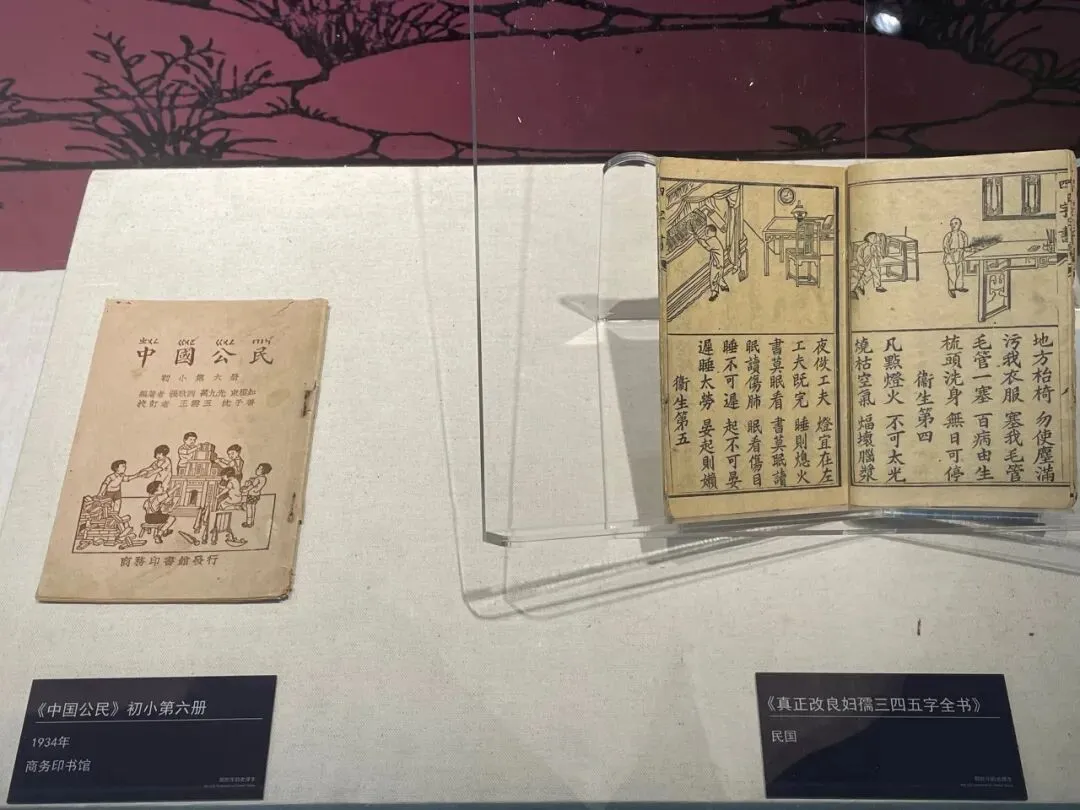 中國公民
初小第六冊
編著者
校訂者 王雲五
商務印書館發行
地方枱椅 勿使塵滿
污我衣服 塞我毛管
毛管一塞 百病由生
梳頭洗身 無日可停
衞生第四
凡點燈火 不可太光
燒枯空氣 煏壞腦漿
夜做工夫 燈宜在左
工夫既完 睡則熄火
書莫眠看 書莫眠讀
眠讀傷肺 眠看傷目
睡不可遲 起不可晏
遲睡太勞 晏起則懶
衞生第五
《中国公民》初小第六册
1934年
商务印书馆
《真正改良妇孺三四五字全书》
民国